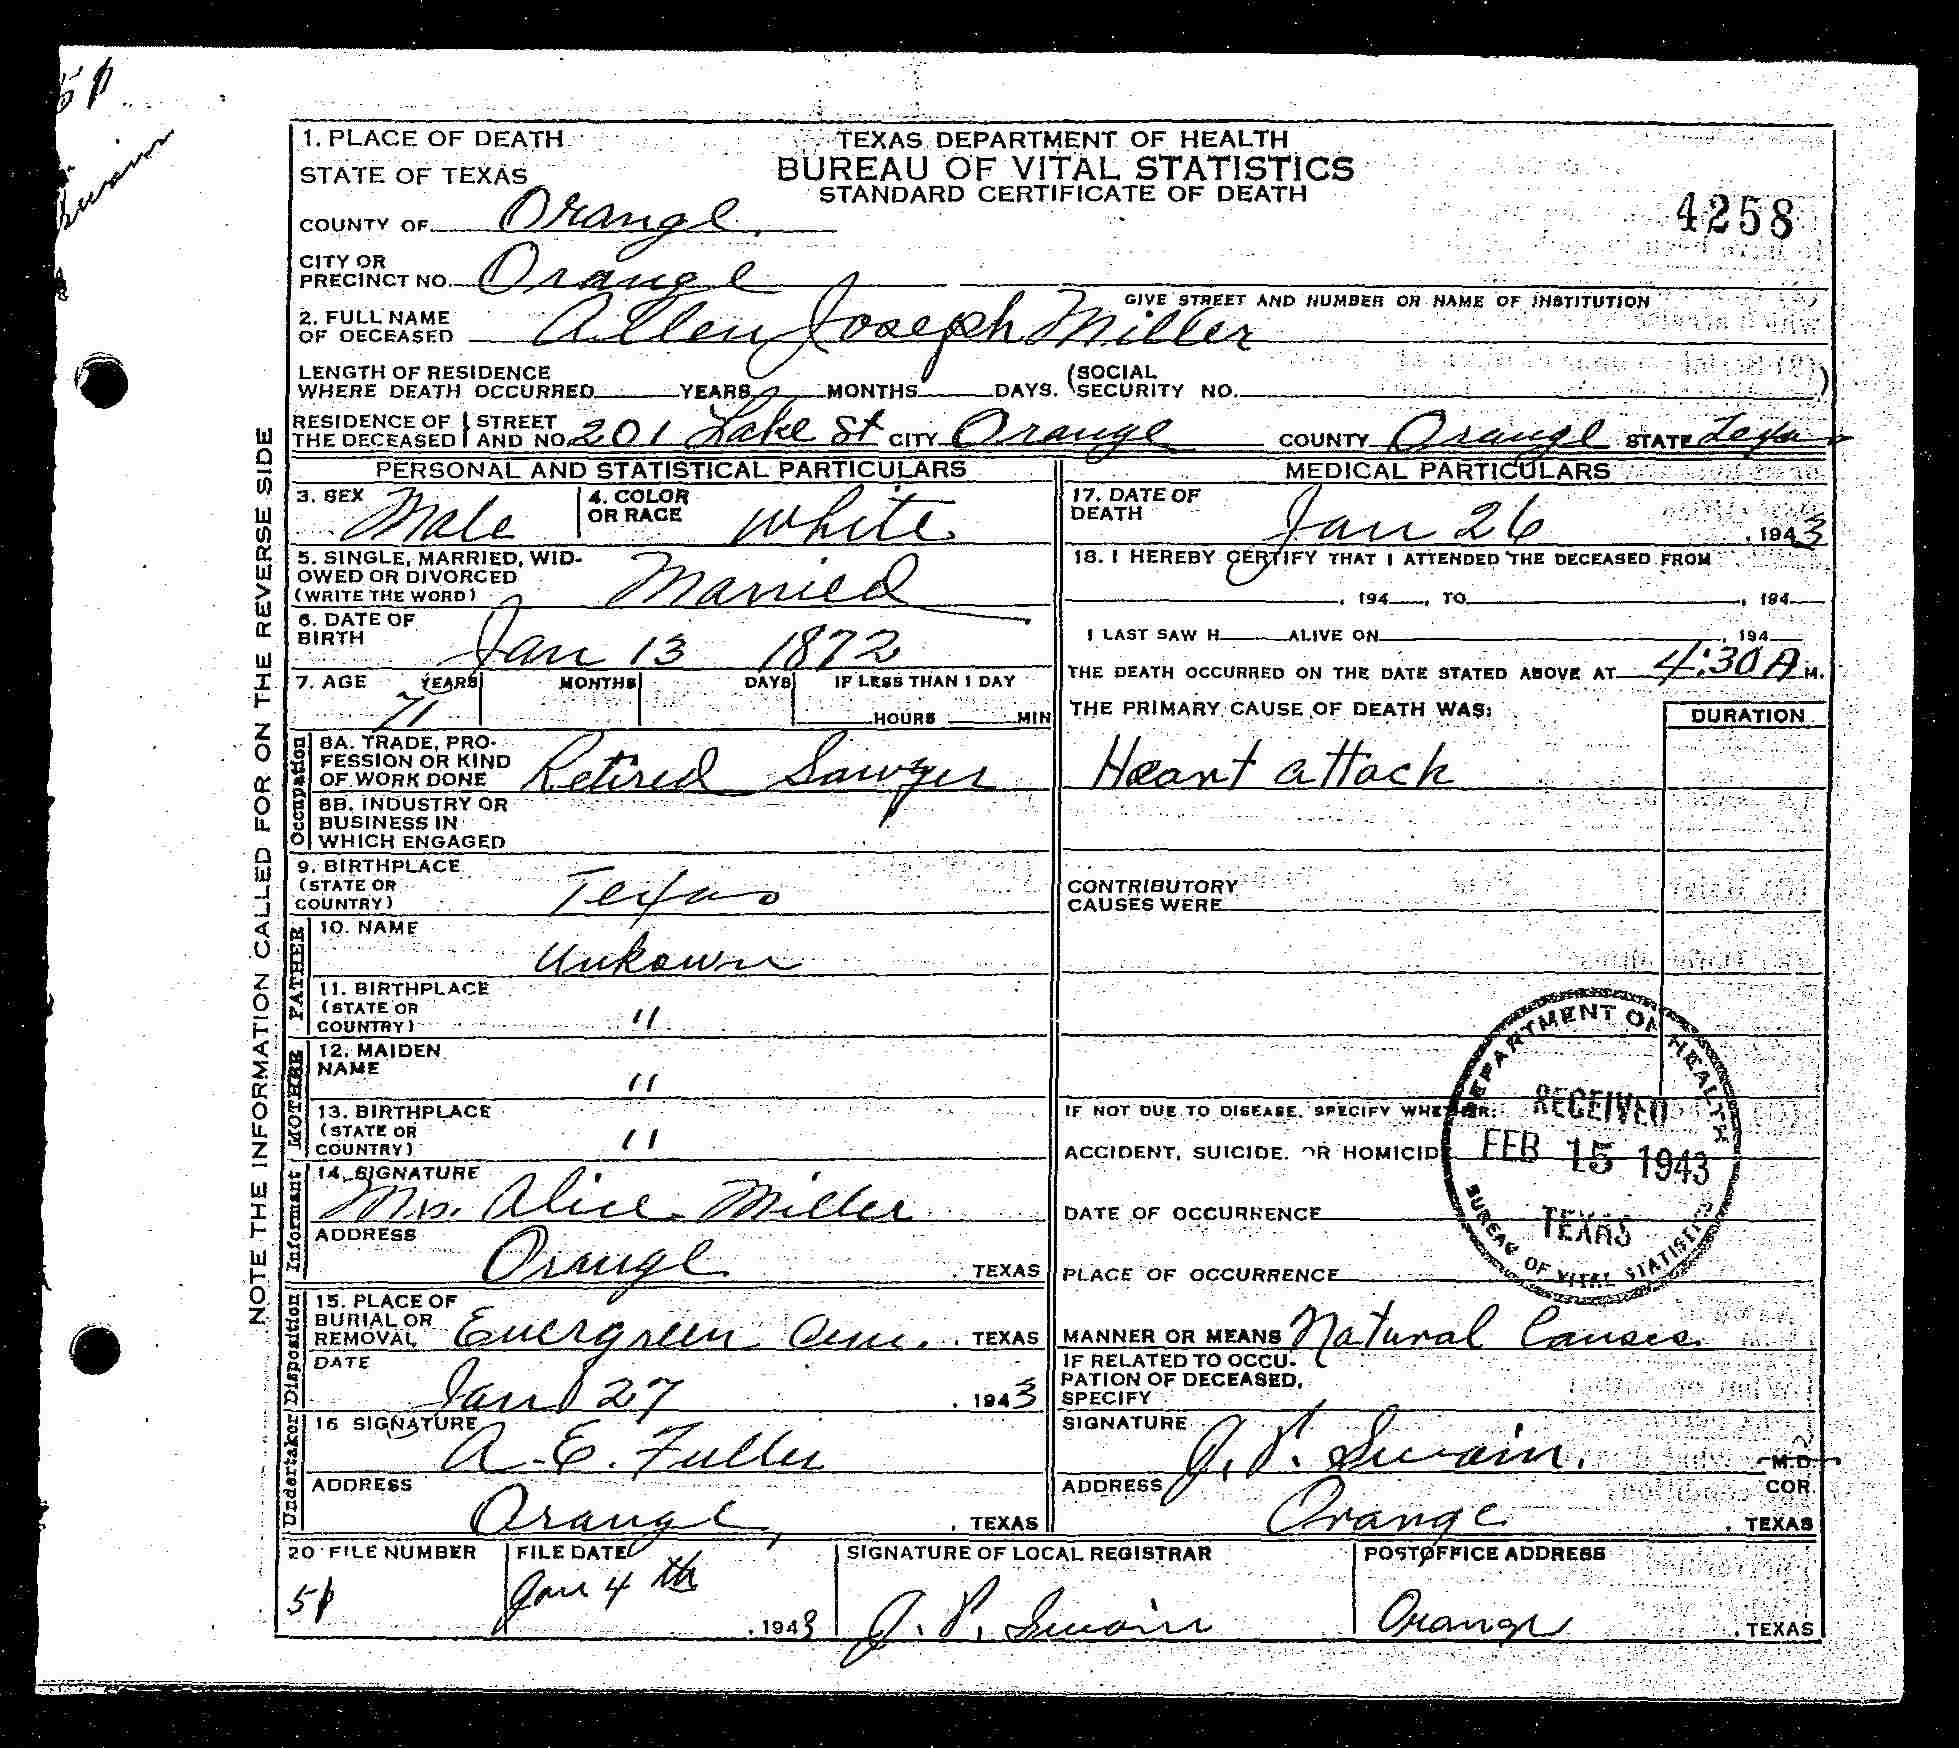 51
Swain
NOTE THE INFORMATION CALLED FOR ON THE REVERSE SIDE
TEXAS DEPARTMENT OF HEALTH
BUREAU OF VITAL STATISTICS
STANDARD CERTIFICATE OF DEATH
4258
1. PLACE OF DEATH
STATE OF TEXAS
COUNTY OF Orange
CITY OR
PRECINCT NO. Orange
GIVE STREET AND NUMBER OR NAME OF INSTITUTION
2. FULL NAME
OF DECEASED Allen Joseph Miller
LENGTH OF RESIDENCE
WHERE DEATH OCCURRED YEARS MONTHS DAYS. (SOCIAL
SECURITY NO. )
RESIDENCE OF THE DECEASED STREET AND NO. 201 Lake St CITY Orange COUNTY Orange STATE Texas
PERSONAL AND STATISTICAL PARTICULARS
3. SEX Male
4. COLOR
OR RACE White
5. SINGLE, MARRIED, WID-
OWED OR DIVORCED
(WRITE THE WORD) Married
6. DATE OF
BIRTH Jan 13 1872
7. AGE YEARS MONTHS DAYS IF LESS THAN 1 DAY
71 HOURS MIN
Occupation
8A. TRADE, PRO-
FESSION OR KIND
OF WORK DONE Retired Sawyer
8B. INDUSTRY OR
BUSINESS IN
WHICH ENGAGED
9. BIRTHPLACE
(STATE OR
COUNTRY) Texas
FATHER
10. NAME
Unkown
11. BIRTHPLACE
(STATE OR
COUNTRY) "
MOTHER
12. MAIDEN
NAME "
13. BIRTHPLACE
(STATE OR
COUNTRY) "
Informant
14. SIGNATURE
Mrs. Alice Miller
ADDRESS
Orange . TEXAS
Disposition
15. PLACE OF
BURIAL OR
REMOVAL Evergreen Cem. . TEXAS
DATE
Jan 27 . 1943
Undertaker
16 SIGNATURE
A. E. Fuller
ADDRESS
Orange, . TEXAS
MEDICAL PARTICULARS
17. DATE OF
DEATH Jan 26 . 1943
18. I HEREBY CERTIFY THAT I ATTENDED THE DECEASED FROM
, 194 , TO , 194
I LAST SAW H ALIVE ON , 194
THE DEATH OCCURRED ON THE DATE STATED ABOVE AT 4:30 A M.
THE PRIMARY CAUSE OF DEATH WAS: DURATION
Heart attack
CONTRIBUTORY
CAUSES WERE
IF NOT DUE TO DISEASE, SPECIFY WHETHER:
ACCIDENT, SUICIDE, OR HOMICID
DATE OF OCCURRENCE
PLACE OF OCCURRENCE
DEPARTMENT OF HEALTH
RECEIVED
FEB 15 1943
TEXAS
BUREAU OF VITAL STATISTICS
MANNER OR MEANS Natural Causes.
IF RELATED TO OCCU-
PATION OF DECEASED,
SPECIFY
SIGNATURE
J. P. Swain. M.D.
COR
ADDRESS
Orange . TEXAS
20 FILE NUMBER FILE DATE SIGNATURE OF LOCAL REGISTRAR POSTOFFICE ADDRESS
51 Jan 4th . 1943 J. P. Swain Orange . TEXAS